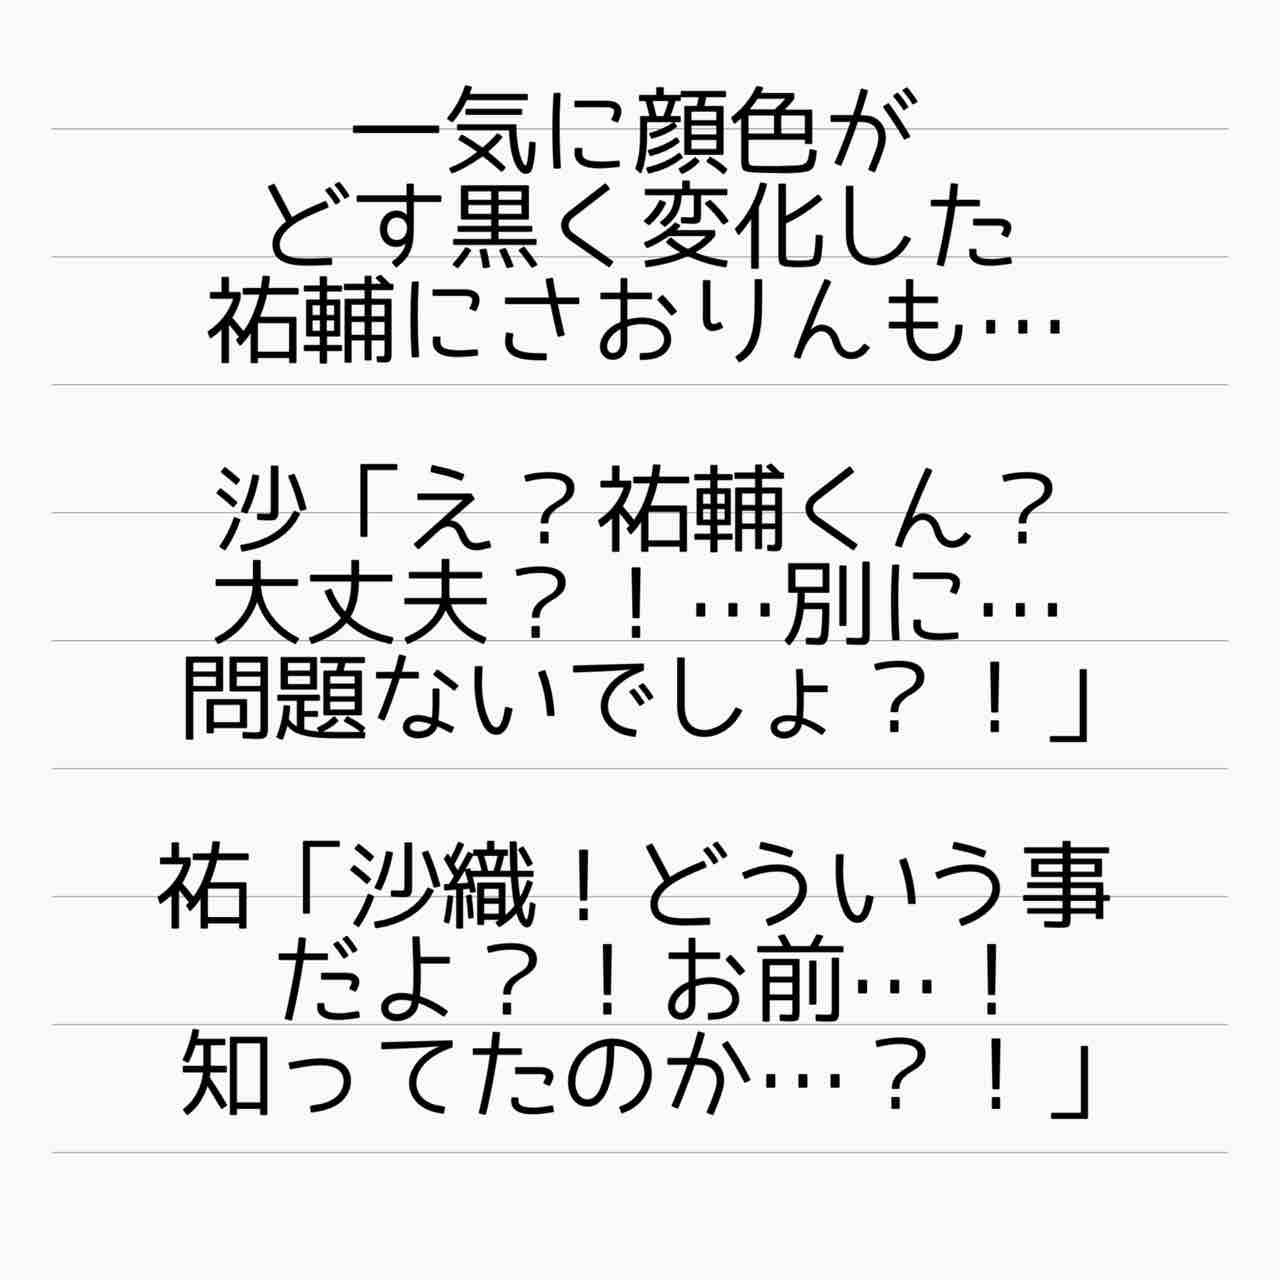 一気に顔色が
どす黒く変化した
祐輔にさおりんも…
沙「え？祐輔くん？
大丈夫？！…別に…
問題ないでしょ？！」
祐「沙織！どういう事
だよ？！お前…！
知ってたのか…？！」